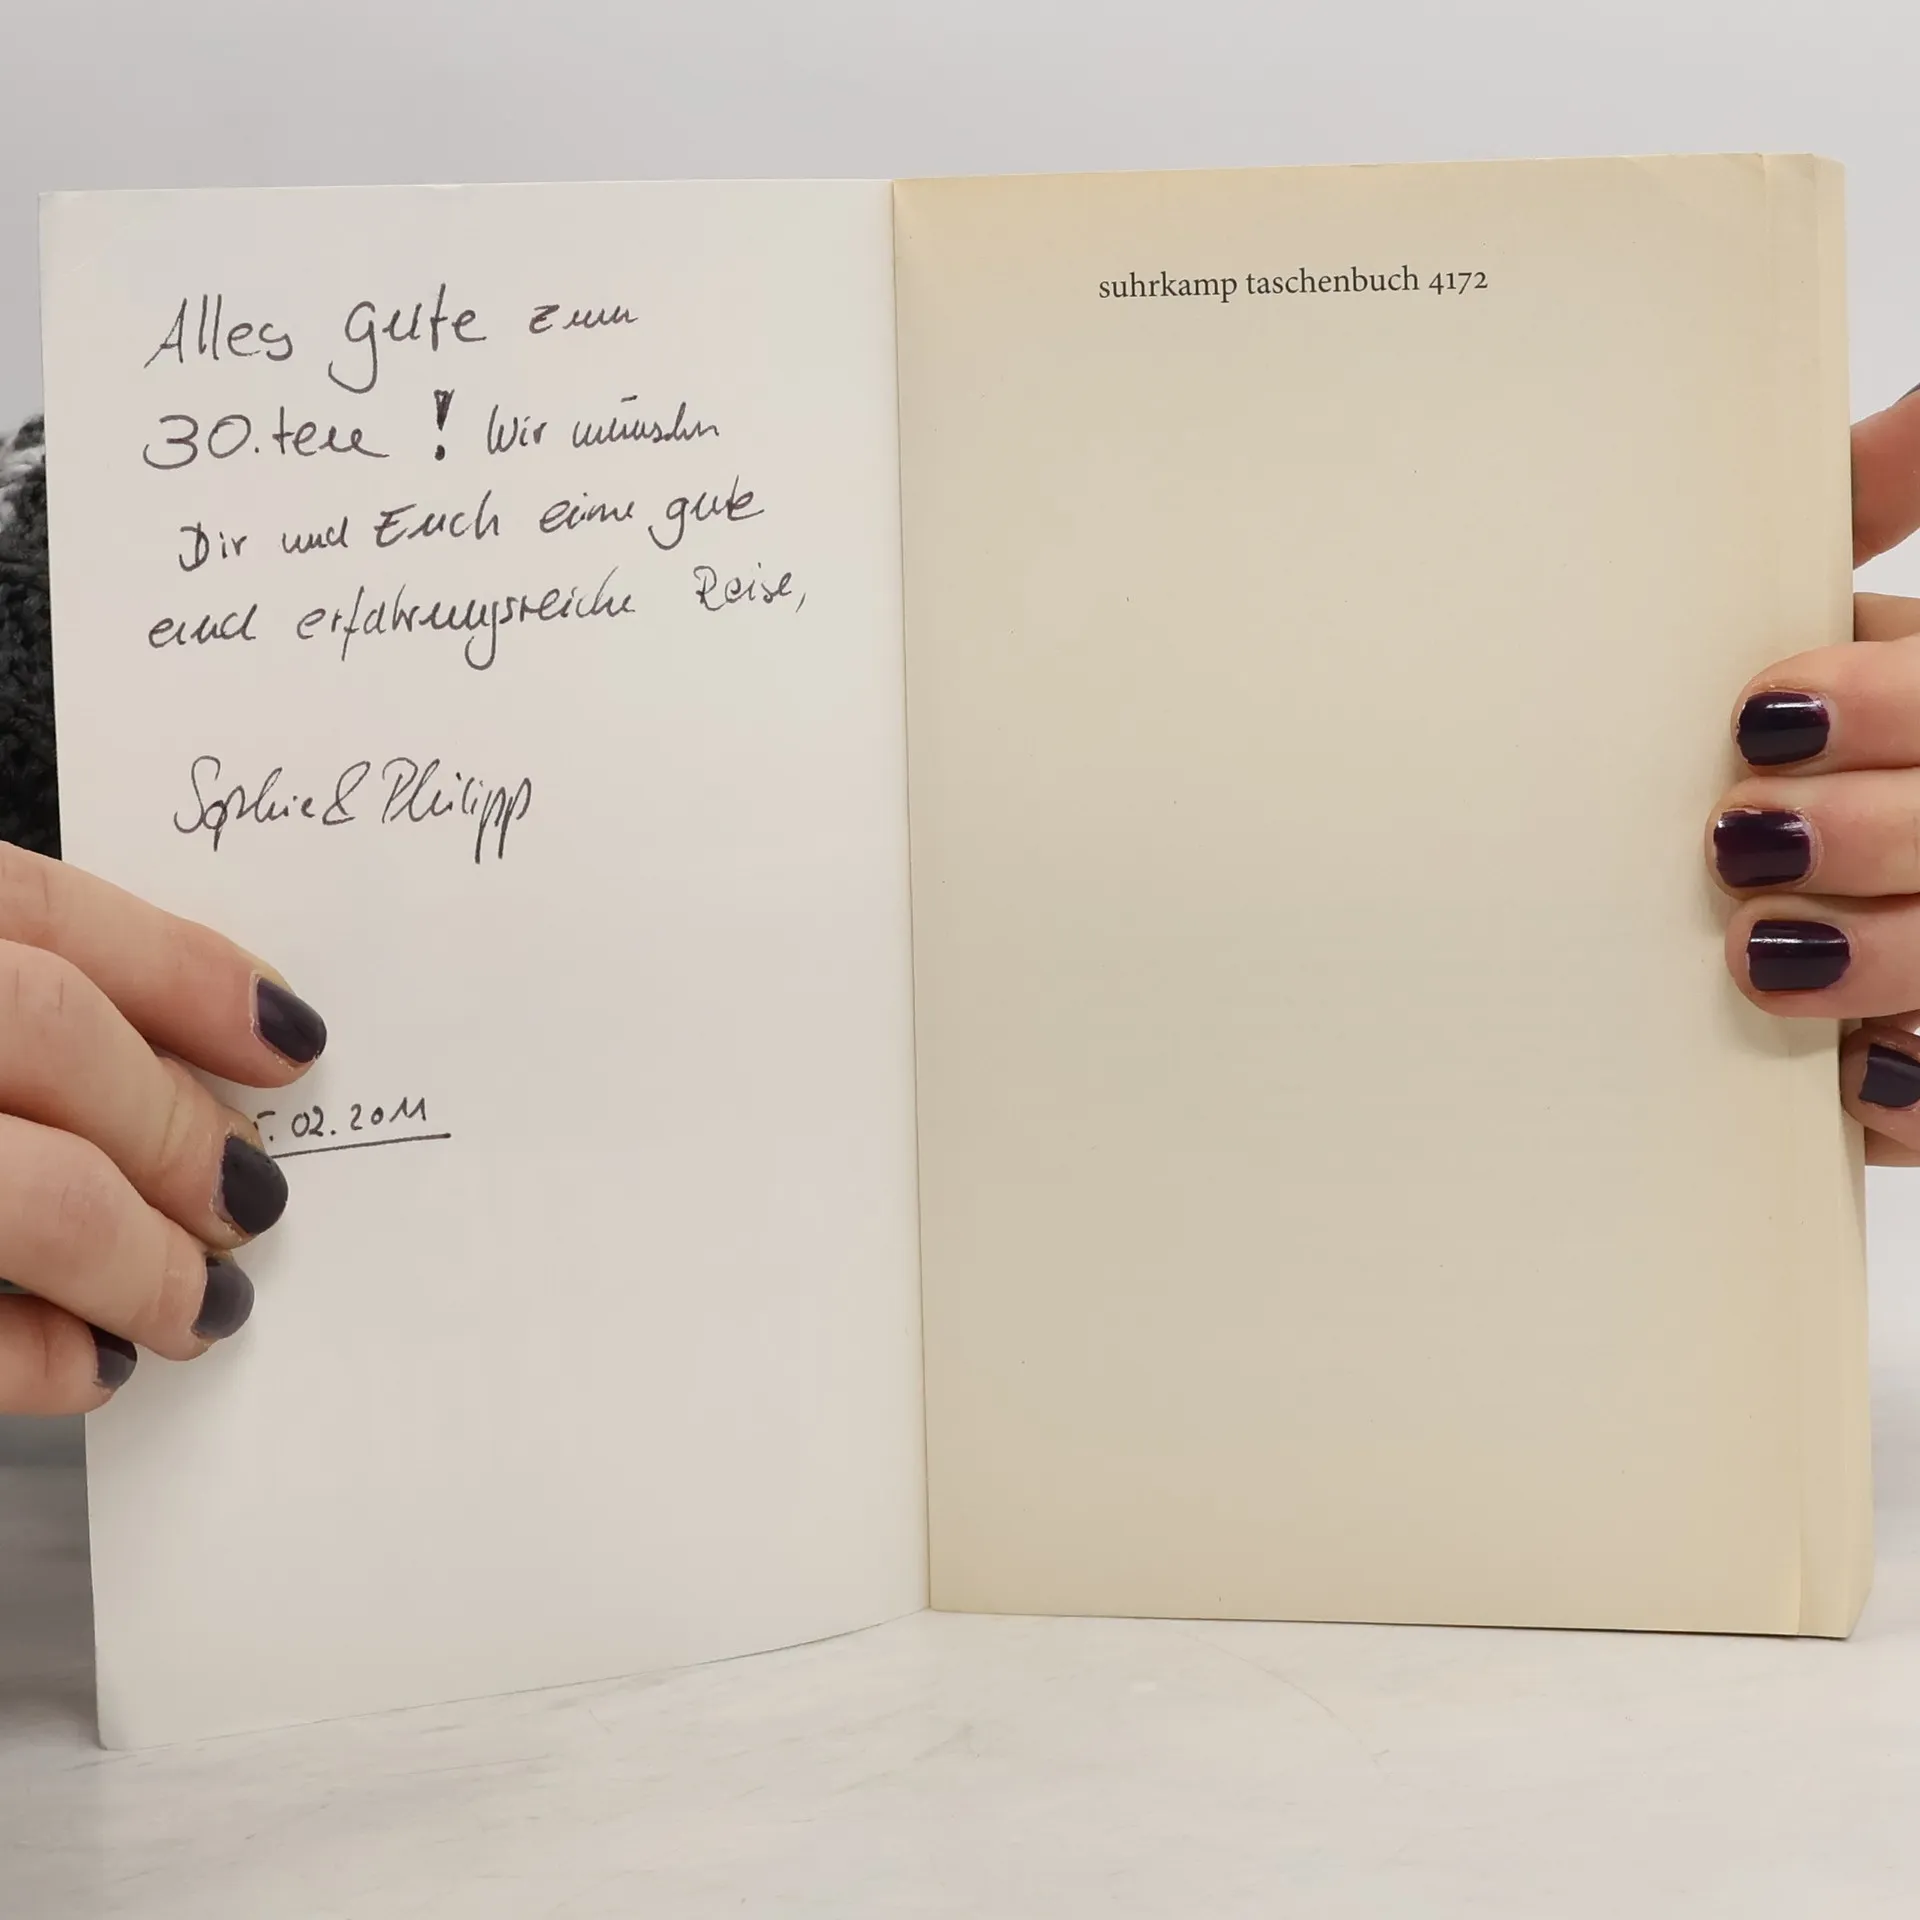 Alles gute zum
30.ten ! Wir wünschen
Dir und Euch eine gute
und erfahrungsreiche Reise,
Sophie & Philipp
. 02. 2011
suhrkamp taschenbuch 4172